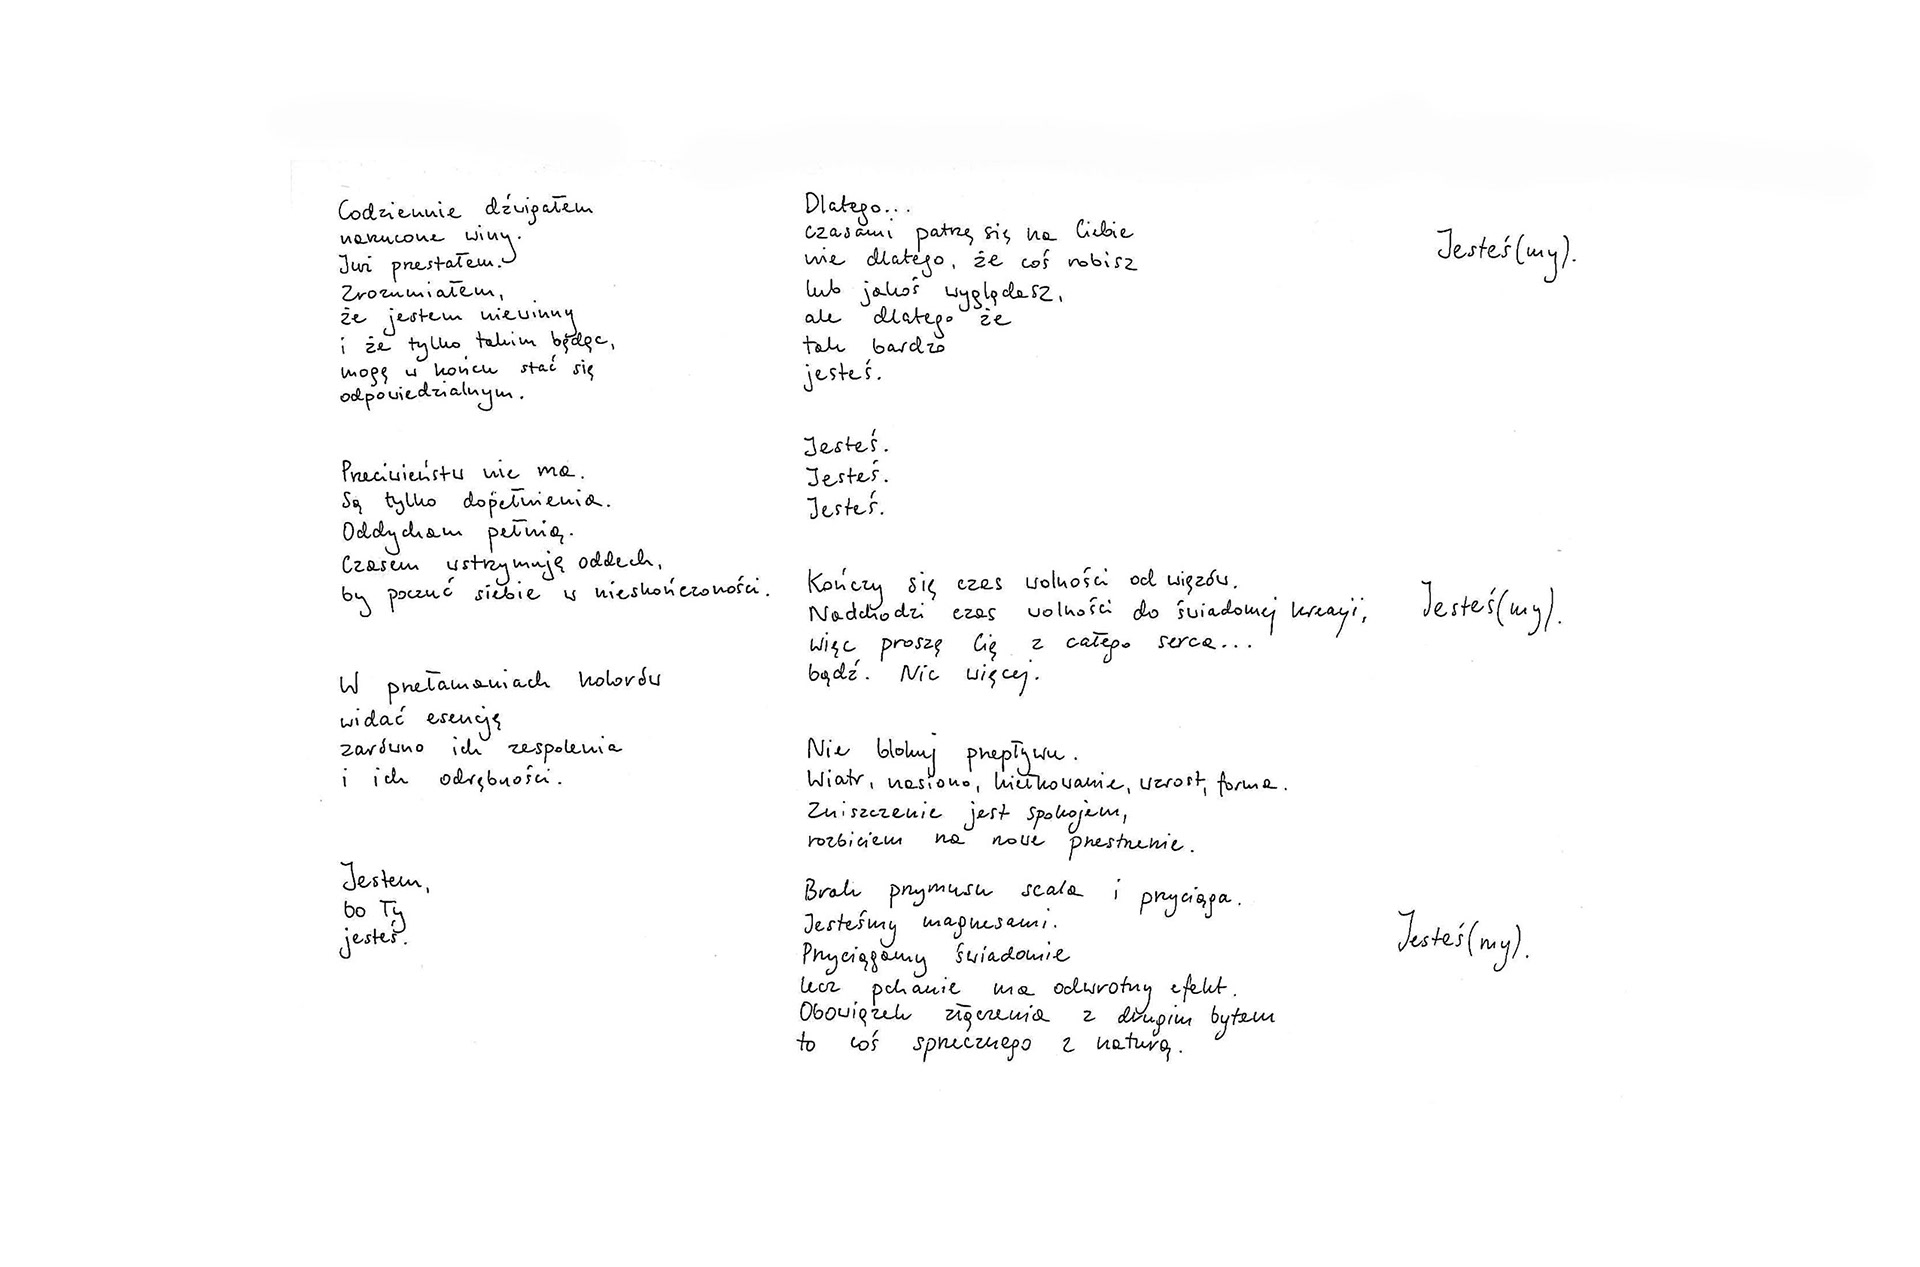 Codziennie dźwigałem
narzucone winy.
Już przestałem.
Zrozumiałem,
że jestem niewinny
i że tylko takim będąc,
mogę w końcu stać się
odpowiedzialnym.
Przeciwieństw nie ma.
Są tylko dopełnienia.
Oddycham pełnią.
Czasem wstrzymuję oddech,
by poczuć siebie w nieskończoności.
W przełamaniach kolorów
widać esencję
zarówno ich zespolenia
i ich odrębności.
Jestem,
bo Ty
jesteś.
Dlatego...
czasami patrzę się na Ciebie
nie dlatego, że coś robisz
lub jakoś wyglądasz,
ale dlatego że
tak bardzo
jesteś.
Jesteś.
Jesteś.
Jesteś.
Kończy się czas wolności od więzów.
Nadchodzi czas wolności do świadomej kreacji,
więc proszę Cię z całego serca...
bądź. Nic więcej.
Nie blokuj przepływu.
Wiatr, nasiono, kiełkowanie, wzrost, forma.
Zniszczenie jest spokojem,
rozbiciem na nowe przestrzenie.
Brak przymusu scala i przyciąga.
Jesteśmy magnesami.
Przyciągamy świadomie
lecz pchanie ma odwrotny efekt.
Obowiązek złączenia z drugim bytem
to coś sprzecznego z naturą.
Jesteś(my).
Jesteś(my).
Jesteś(my).